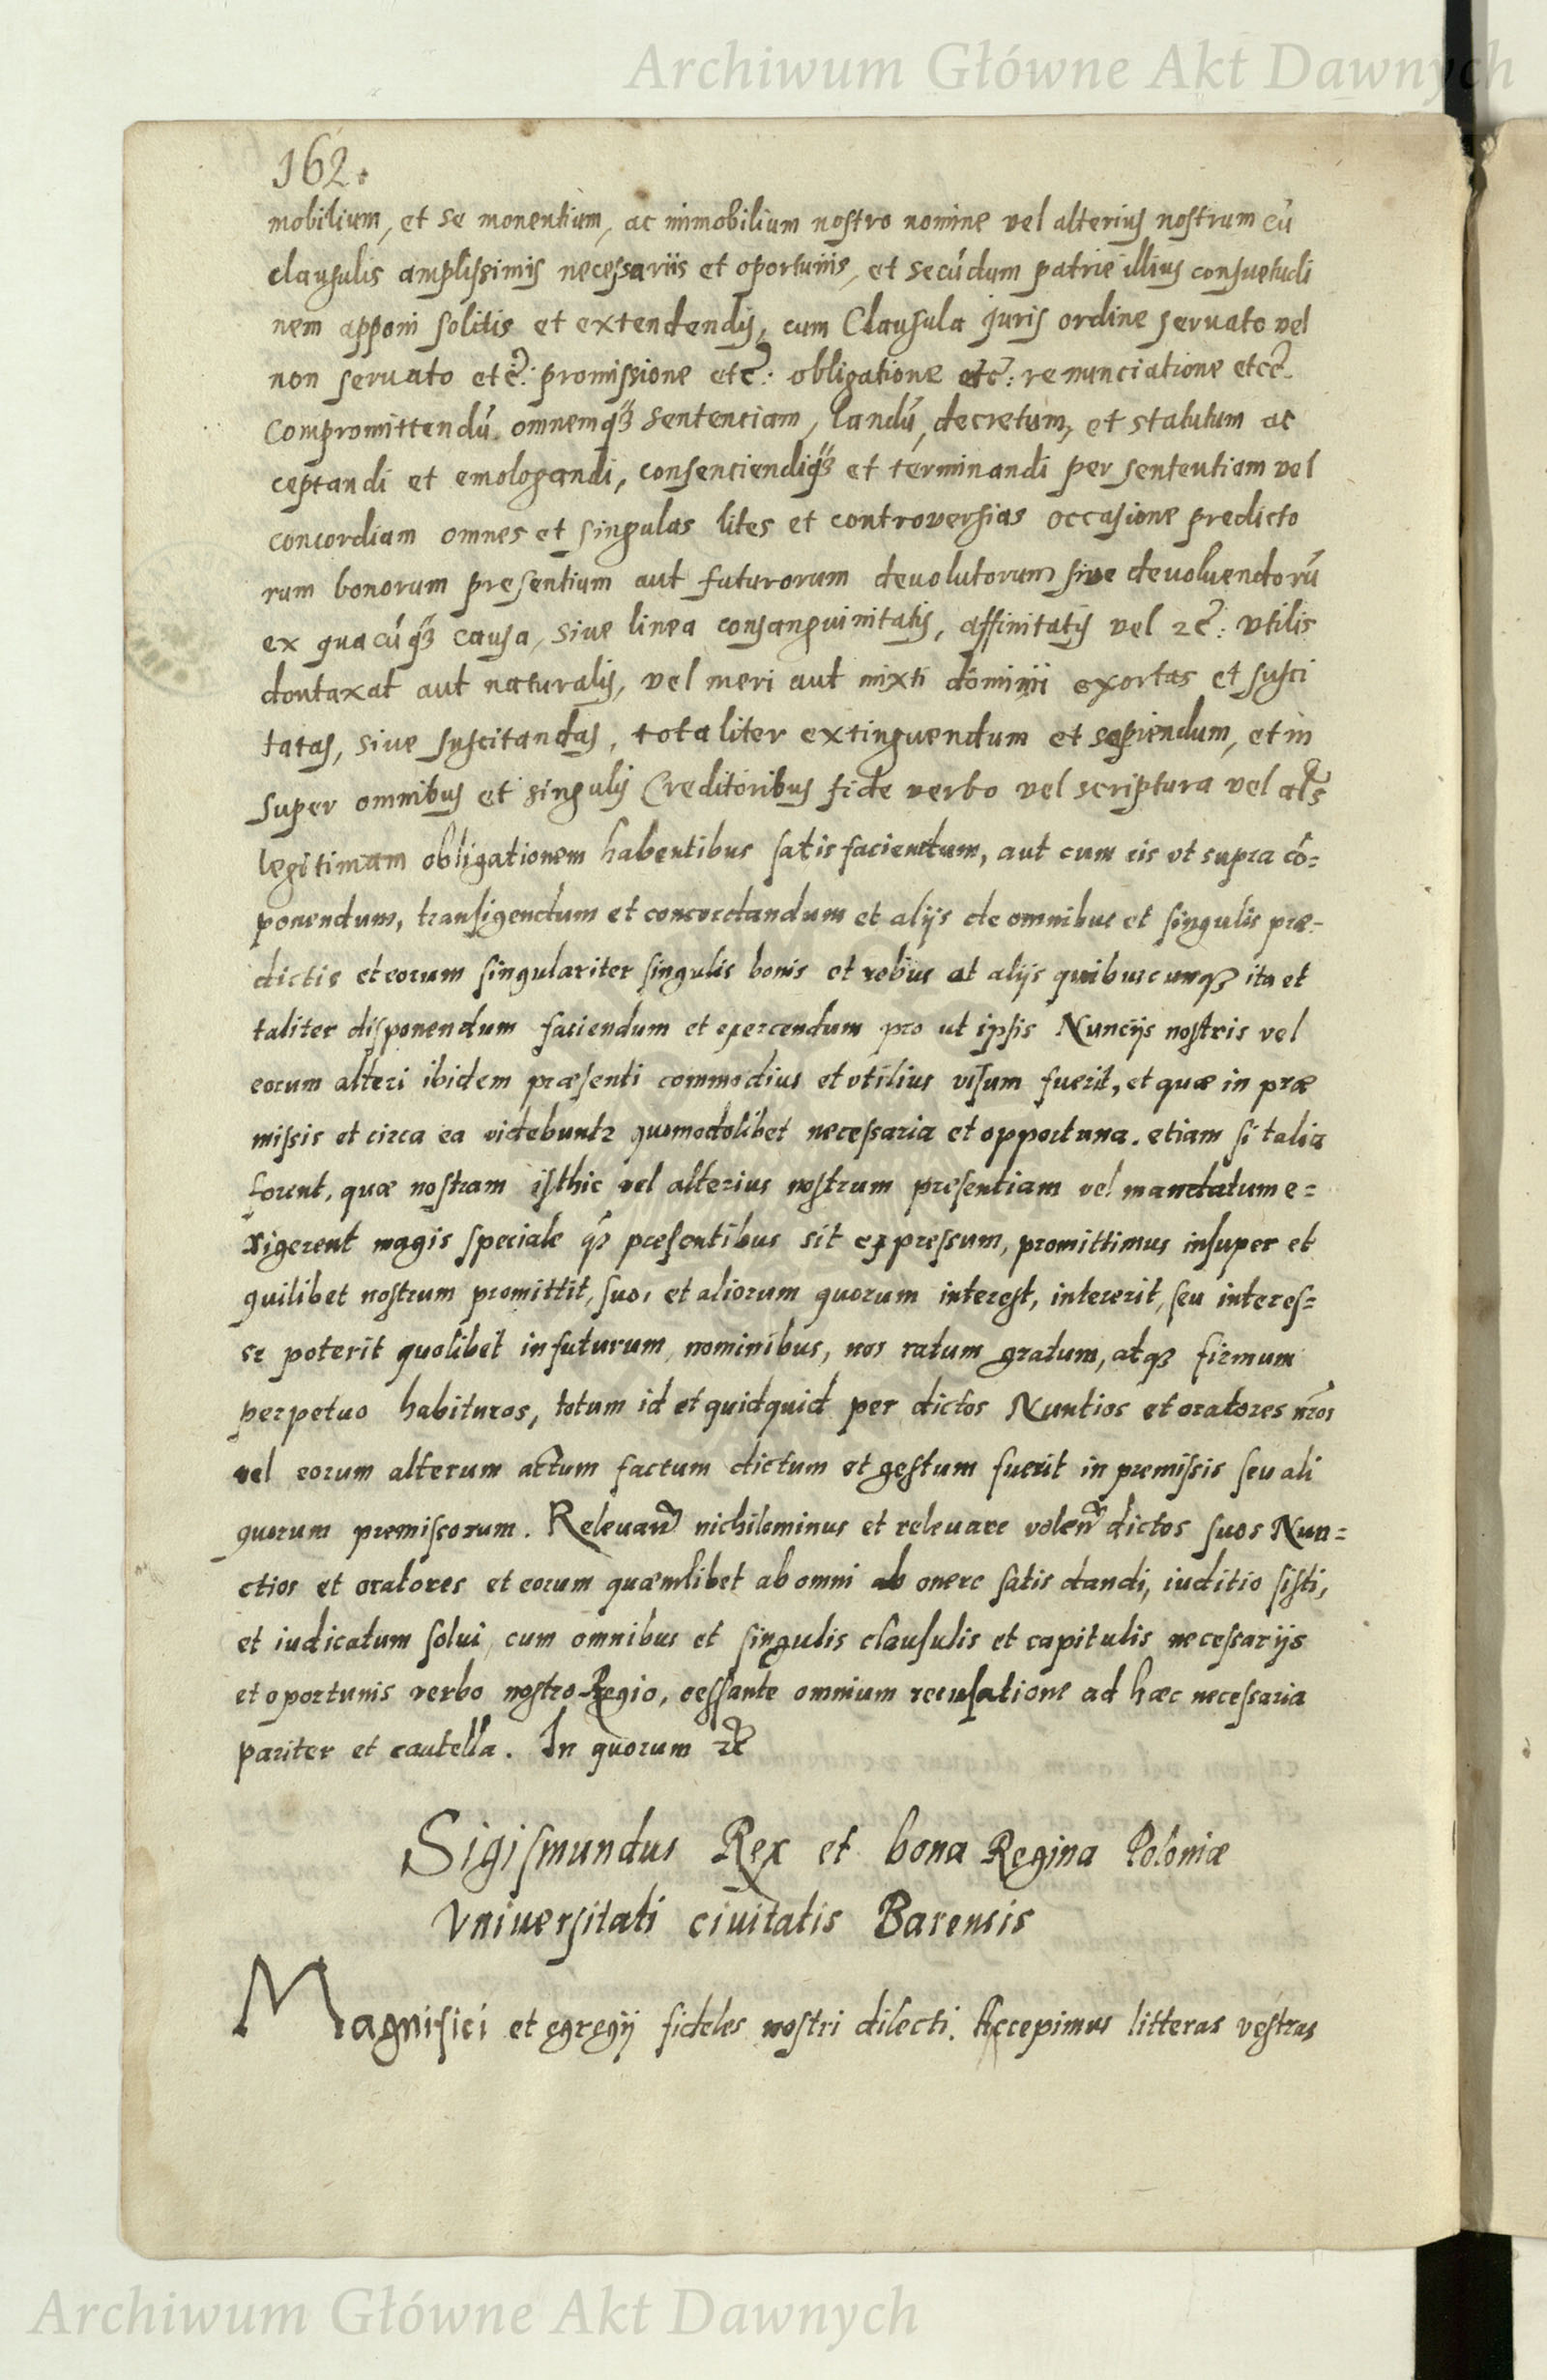 Archiwum Główne Akt Dawnych
162.
mobilium, et se monentium, ac immobilium nostro nomine vel alterius nostrum cū
clausulis amplissimis necessariis et oportunis, et secūdum patrie illius consuetudi
nem apponi solitis et extendendis, cum Clausula juris ordine servato vel
non servato etc̃: promissione etc̃: obligatione etc̃: renunciatione etcẽ.
Compromittendū. omnemq̃ꝫ sentenciam, laudū, decretum, et statutum ac
ceptandi et emologandi, consenciendiq̃ꝫ et terminandi per sententiam vel
concordiam omnes et singulas lites et controversias occasione predicto
rum bonorum presentium aut futurorum devolutorum sive devoluendorū
ex quacūq̃ꝫ causa, sive linea consanguinitatis, affinitatis vel ⁊c̃: utilis
dontaxat aut naturalis, vel meri aut mixti dominii exortas et susci
tatas, sive suscitandas, totaliter extinguendum et sopiendum, et in
super omnibus et singulis Creditoribus fide verbo vel scriptura vel al̃s
legitimam obligationem habentibus satisfaciendum, aut cum eis ut supra cō=
ponendum, transigendum et concordandum et alijs de omnibus et singulis præ-
dictis et eorum singulariter singulis bonis et rebus at alijs quibuscunqꝫ ita et
taliter disponendum faciendum et exercendum pro ut ipsis Nuncijs nostris vel
eorum alteri ibidem præsenti commodius et utilius visum fuerit, et quæ in præ
missis et circa ea videbunt2 quomodolibet necessaria et opportuna. etiam si talia
forent, quæ nostram isthic vel alterius nostrum presentiam vel mandatum e=
xigerent magis speciale q̃ꝫ presentibus sit expressum, promittimus insuper et
quilibet nostrum promittit, suo, et aliorum quorum interest, intererit, seu interes=
se poterit quolibet in futurum, nominibus, nos ratum gratum, atqꝫ firmum
perpetuo habituros, totum id et quidquid per dictos Nuntios et oratores nr̃os
vel eorum alterum actum factum dictum et gestum fuerit in premissis seu ali
quorum premissorum. Relevan̄ nichilominus et relevare volen̄ dictos suos Nun=
ctios et oratores et eorum quæmlibet ab omni ab onere satis dandi, iuditio sisti,
et iudicatum solui, cum omnibus et singulis clausulis et capitulis necessarijs
et oportunis verbo nostro Regio, cessante omnium recusatione ad hæc necessaria
pariter et cautella. In quorum ⁊c̃
Sigismundus Rex et bona Regina Poloniæ
Vniversitati civitatis Barensis
Magnifici et egregij fideles nostri dilecti. Accepimus litteras vestras
Archiwum Główne Akt Dawnych